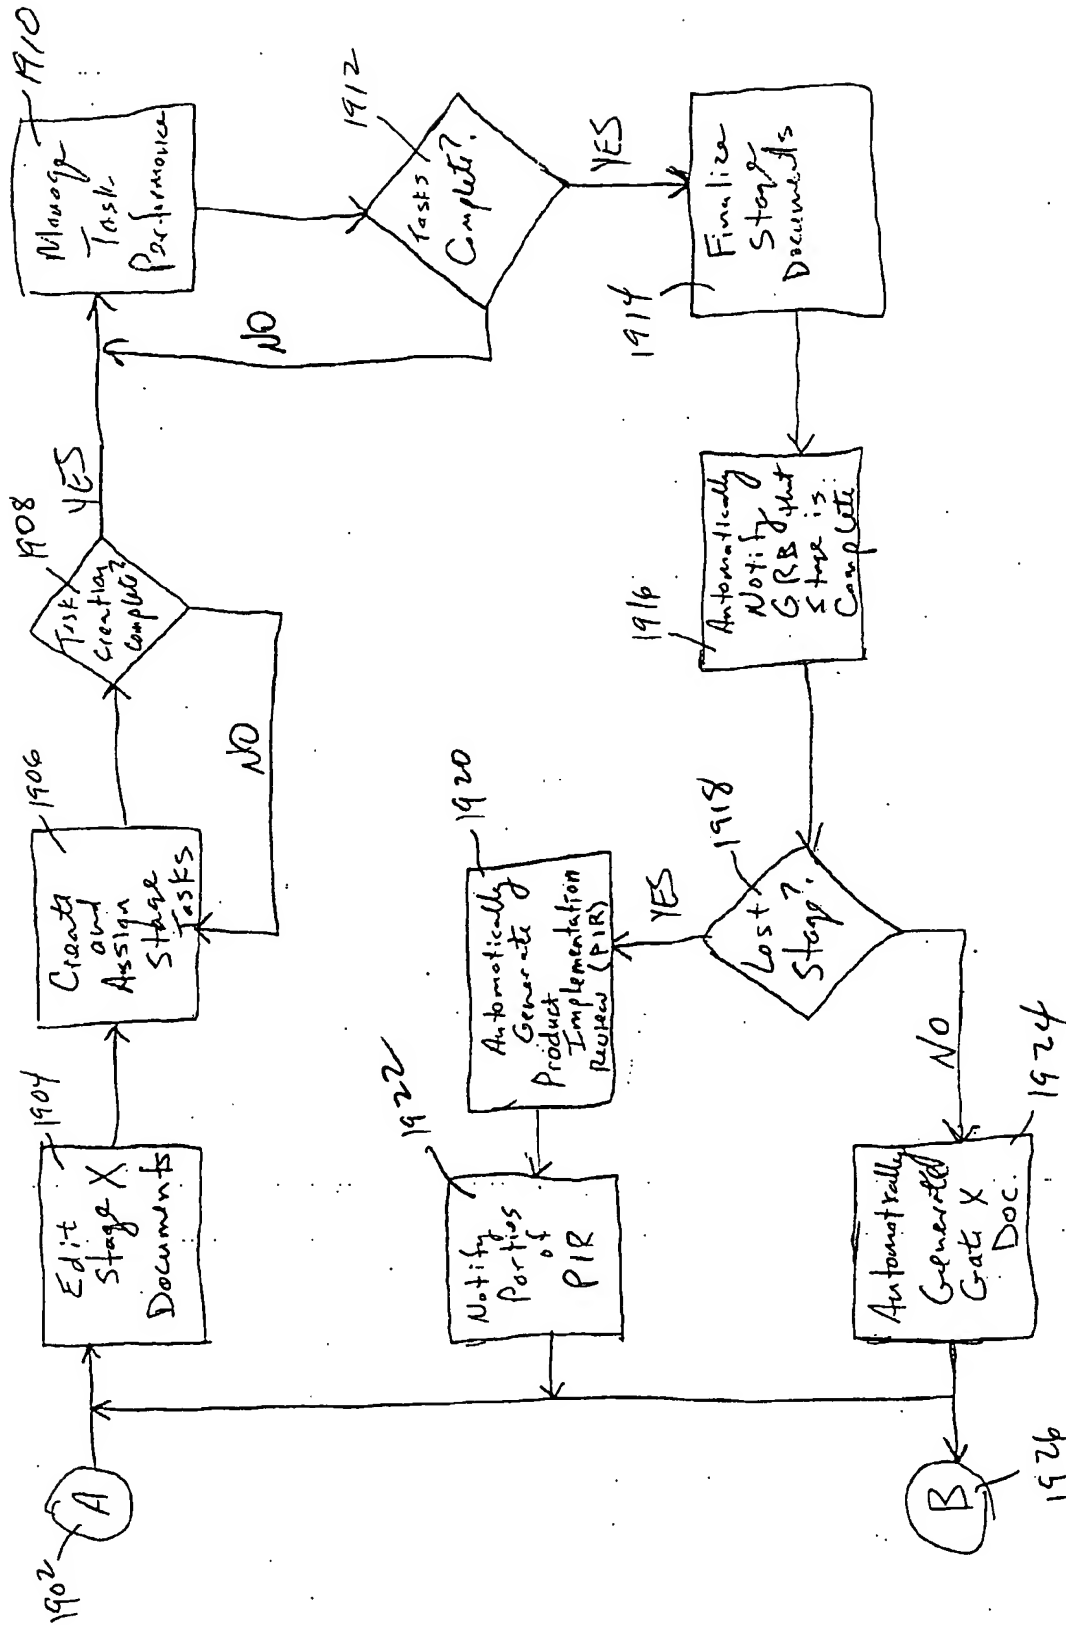 1902
A
1904
Edit
Stage X
Documents
1906
Create
and
Assign
Stage
Tasks
1908
Task
Creation
Complete?
NO
YES
1910
Manage
Task
Performance
1912
Tasks
Complete?
NO
YES
1914
Finalize
Stage
Documents
1916
Automatically
Notify
GRB that
Stage is
Complete
1918
Last
Stage?
YES
1920
Automatically
Generate
Product
Implementation
Review (PIR)
1922
Notify
Parties
of
PIR
NO
1924
Automatically
Generated
Gate X
Doc.
B
1926